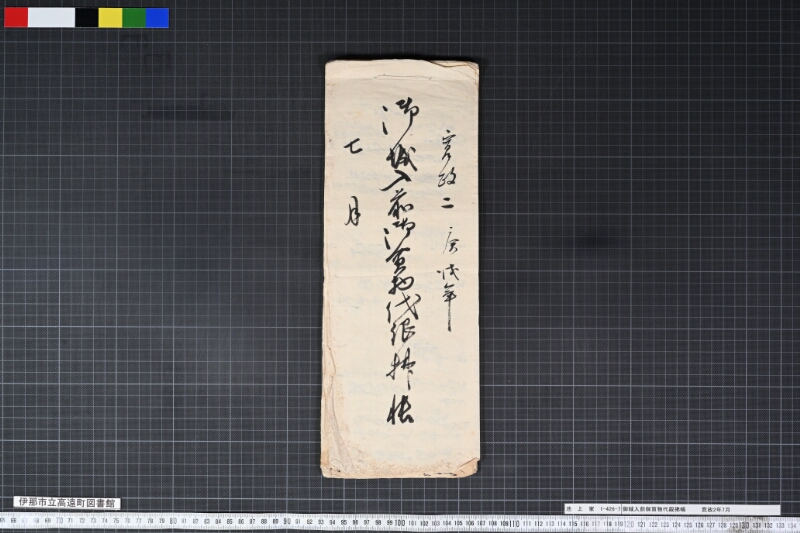 寛政二庚戌年
御城入前御買物代銀拂帳
七月
伊那市立高遠町図書館
池上家 1-426-1 御城入前御買物代銀拂帳 寛政2年7月